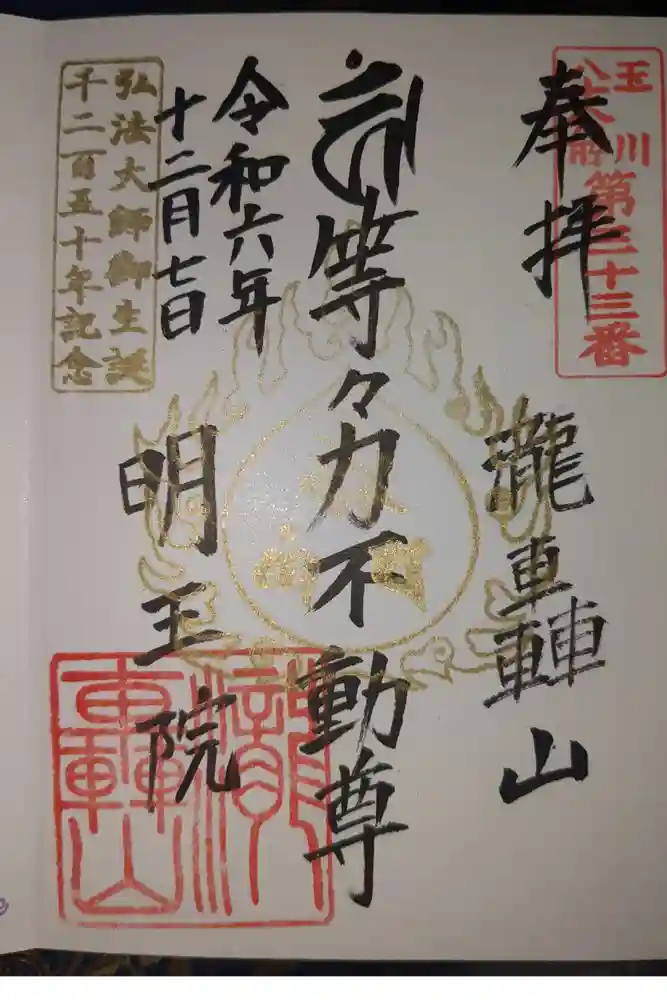 玉川
八十八ヶ所
第三十三番
奉拝
瀧轟山
等々力不動尊
令和六年
十二月七日
明王院
弘法大師御生誕
千二百五十年記念
瀧轟山